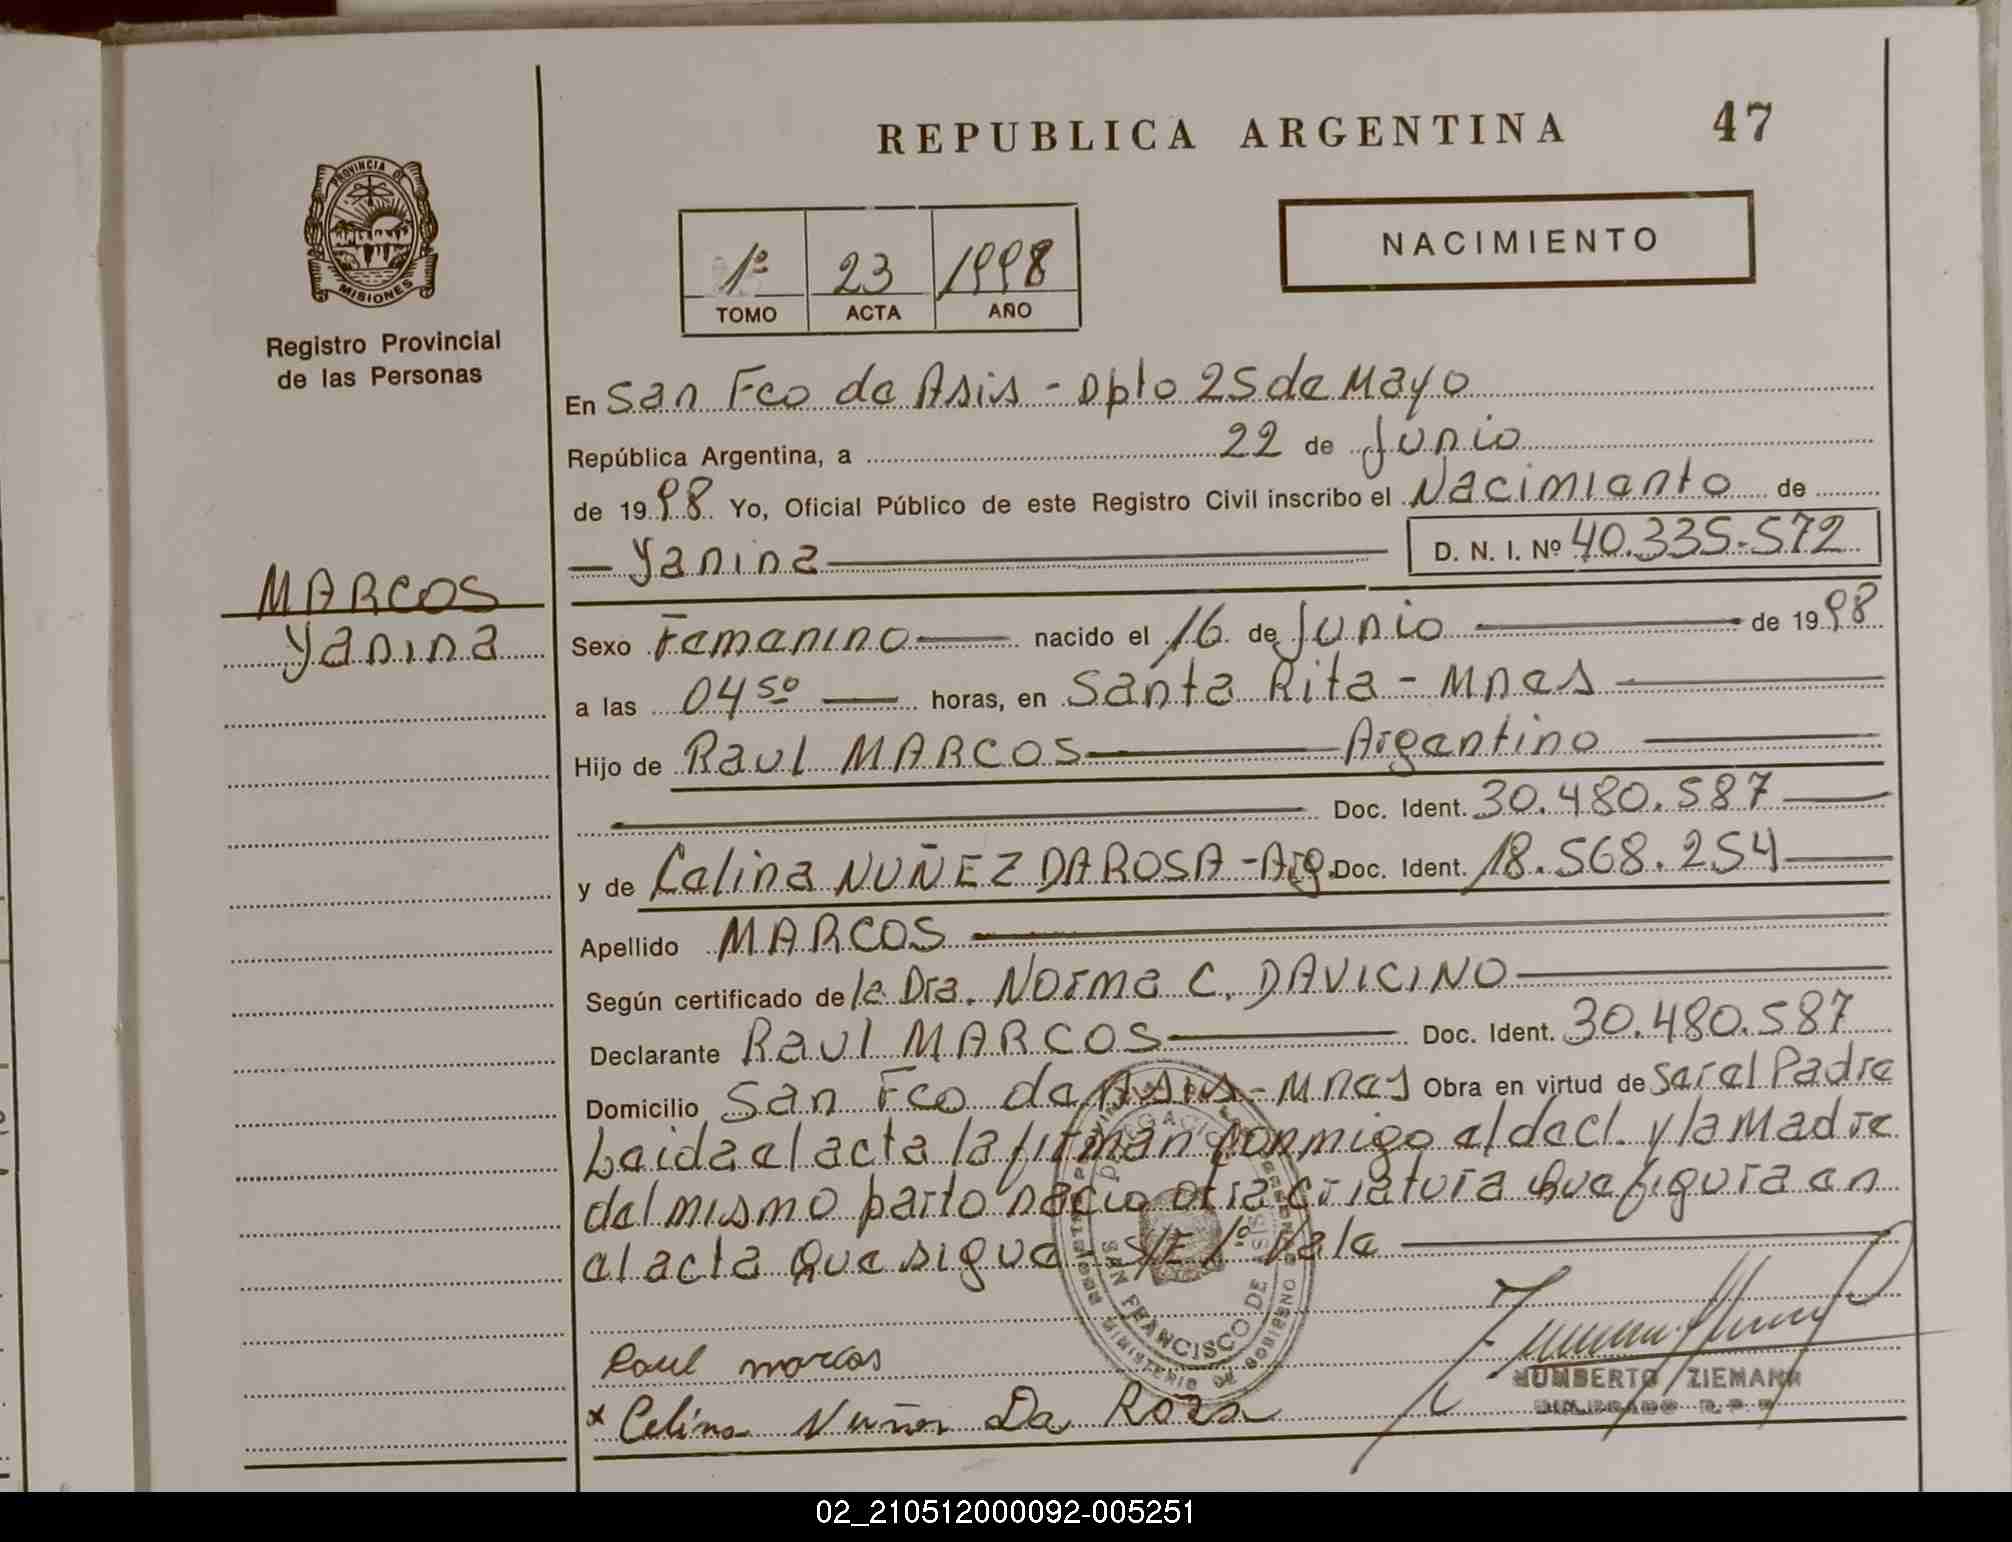 REPUBLICA ARGENTINA 47
PROVINCIA DE
MISIONES
Registro Provincial
de las Personas
1º 23 1998
TOMO ACTA AÑO
NACIMIENTO
En San Fco de Asis - Dpto 25 de Mayo
República Argentina, a 22 de Junio
de 1998 Yo, Oficial Público de este Registro Civil inscribo el Nacimiento de
Yanina D. N. I. Nº 40.335.572
MARCOS
Yanina
Sexo Femenino nacido el 16 de Junio de 1998
a las 04 50 horas, en Santa Rita - Mnes
Hijo de Raul MARCOS Argentino
Doc. Ident. 30.480.587
y de Celina NUÑEZ DA ROSA - Arg. Doc. Ident. 18.568.254
Apellido MARCOS
Según certificado de la Dra. Norma C. DAVICINO
Declarante Raul MARCOS Doc. Ident. 30.480.587
Domicilio San Fco de Asis - Mnes Obra en virtud de Ser el Padre
Leida el acta la firman conmigo el decl. y la Madre
del mismo parto nacio otra criatura que figura en
el acta que sigue S/E 1º Vale
SAN FRANCISCO DE ASIS
MINISTERIO DE GOBIERNO
Raul marcos
x Celina Nuñes Da Roza
HUMBERTO ZIEMANN
02_210512000092-005251